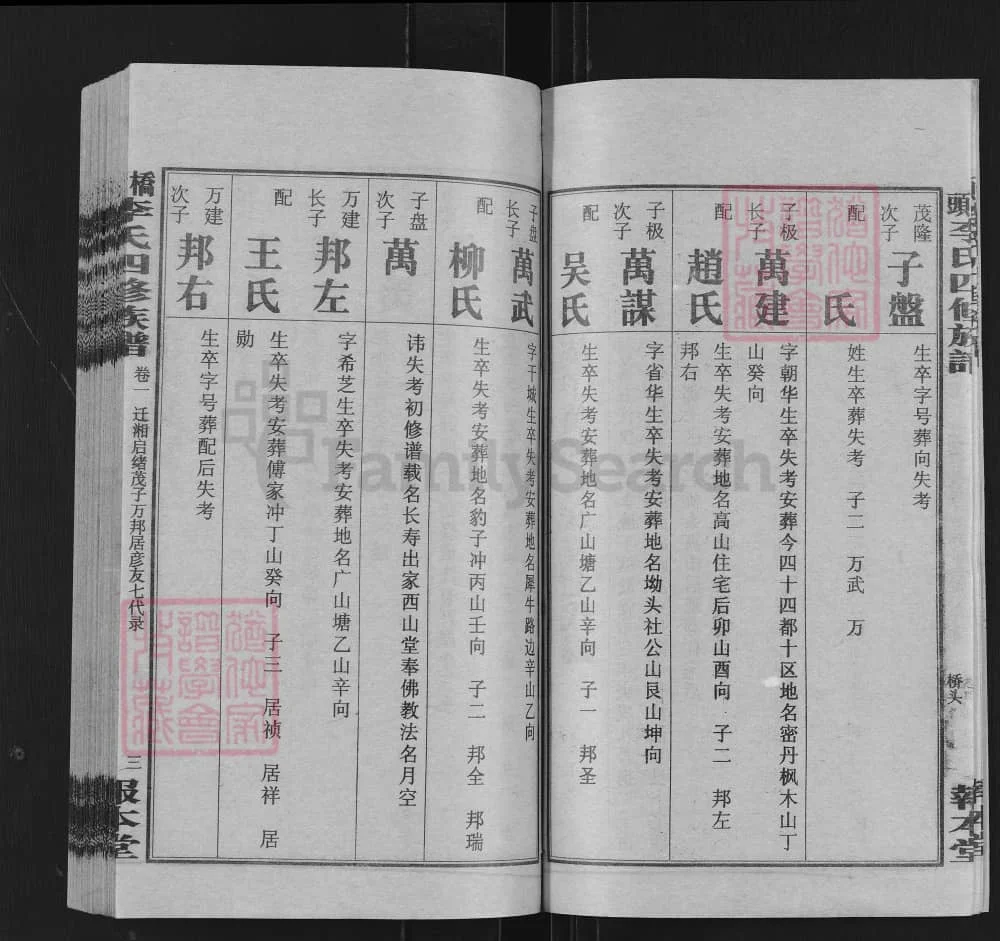 頭李氏四修族譜
桥头
報本堂
茂隆
次子
子盤
生卒字号葬向失考
配
氏
姓生卒葬失考 子二 万武 万
子极
长子
萬建
字朝华生卒失考安葬今四十四都十区地名密丹枫木山丁
山癸向
配
趙氏
生卒失考安葬地名高山住宅后卯山酉向 子二 邦左
邦右
子极
次子
萬謀
字省华生卒失考安葬地名坳头社公山艮山坤向
配
吴氏
生卒失考安葬地名广山塘乙山辛向 子一 邦圣
子盘
长子
萬武
字干城生卒失考安葬地名犀牛路边辛山乙向
配
柳氏
生卒失考安葬地名豹子冲丙山壬向 子二 邦全 邦瑞
子盘
次子
萬
讳失考初修谱载名长寿出家西山堂奉佛教法名月空
万建
长子
邦左
字希芝生卒失考安葬地名广山塘乙山辛向
配
王氏
生卒失考安葬傅家冲丁山癸向 子三 居祯 居祥 居
勋
万建
次子
邦右
生卒字号葬配后失考
橋李氏四修族譜
卷一 迁湘启绪茂子万邦居彦友七代录
三
報本堂
FamilySearch